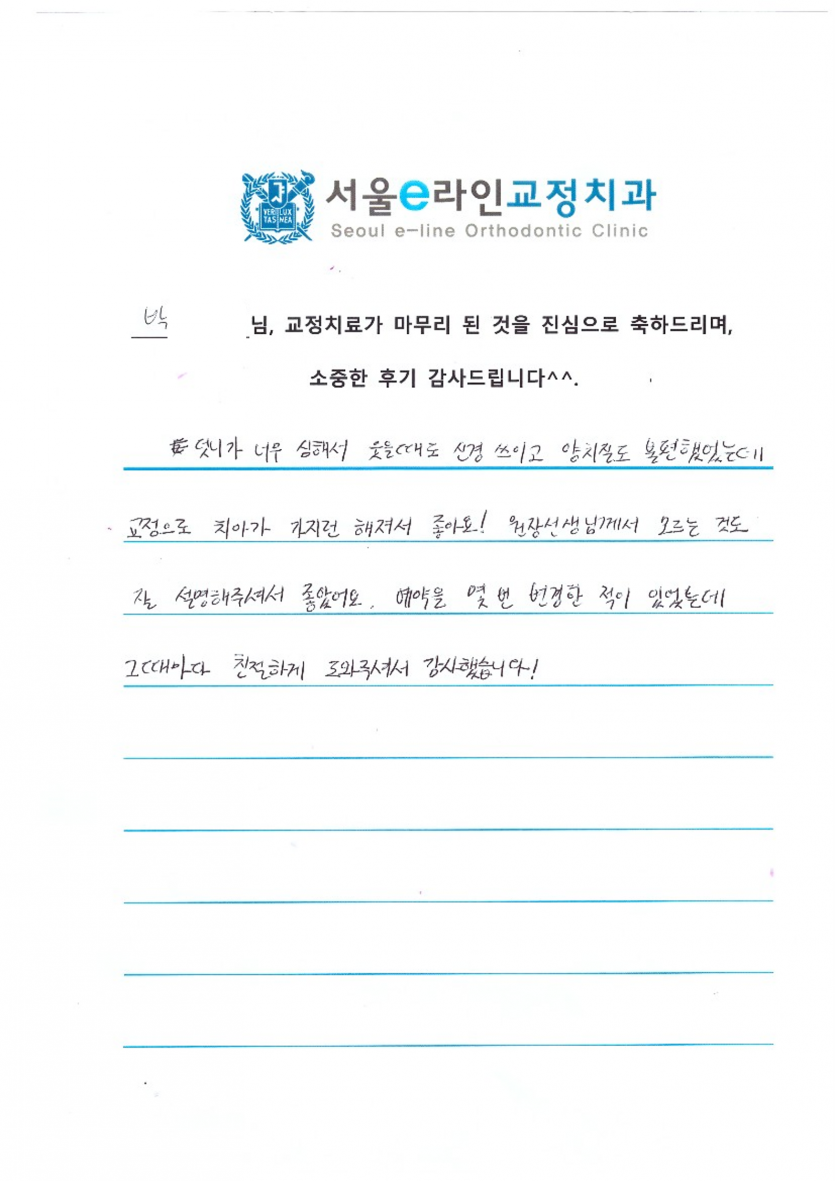 서울e라인교정치과
VERI LUX
TAS MEA
Seoul e-line Orthodontic Clinic
박 님, 교정치료가 마무리 된 것을 진심으로 축하드리며,
소중한 후기 감사드립니다^^.
덧니가 너무 심해서 웃을때도 신경 쓰이고 양치질도 불편했었는데
교정으로 치아가 가지런 해져서 좋아요! 원장선생님께서 모르는 것도
잘 설명해주셔서 좋았어요. 예약을 몇 번 변경한 적이 있었는데
그때마다 친절하게 도와주셔서 감사했습니다!